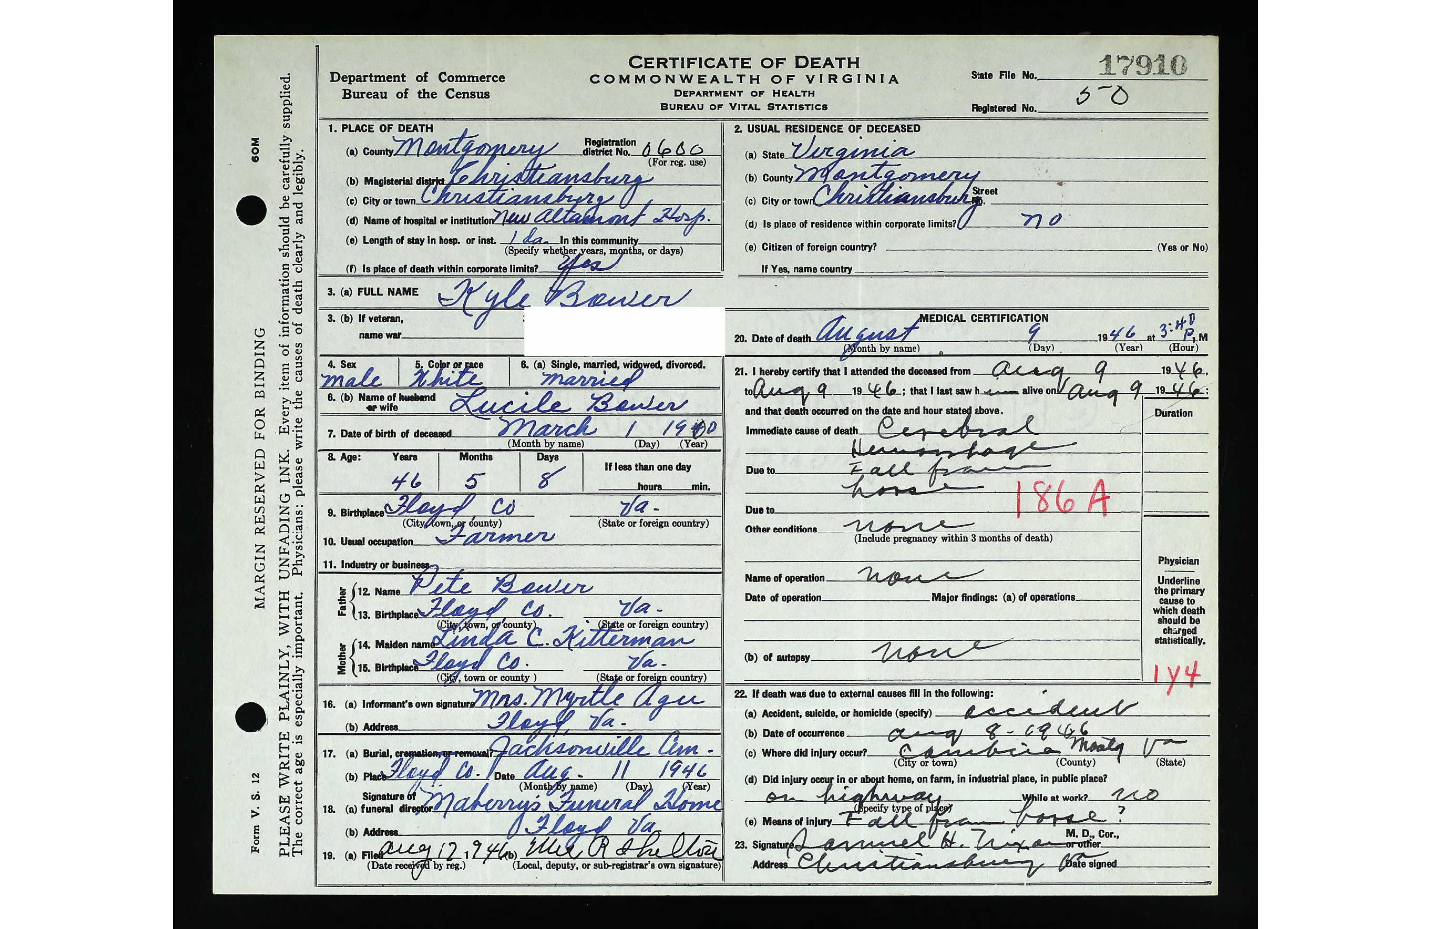 CERTIFICATE OF DEATH
COMMONWEALTH OF VIRGINIA
DEPARTMENT OF HEALTH
BUREAU OF VITAL STATISTICS
Department of Commerce
Bureau of the Census
State File No. 17910
Registered No. 50
1. PLACE OF DEATH
(a) County Montgomery Registration district No. 0600
(For reg. use)
(b) Magisterial district Christiansburg
(c) City or town Christiansburg
(d) Name of hospital or institution New Altamont Hosp.
(e) Length of stay in hosp. or inst. 1 da. In this community
(Specify whether years, months, or days)
(f) Is place of death within corporate limits? Yes
2. USUAL RESIDENCE OF DECEASED
(a) State Virginia
(b) County Montgomery
(c) City or town Christiansburg Street No.
(d) Is place of residence within corporate limits? no
(e) Citizen of foreign country? (Yes or No)
If Yes, name country
3. (a) FULL NAME Kyle Bower
3. (b) If veteran,
name war
4. Sex male
5. Color or race White
6. (a) Single, married, widowed, divorced. married
6. (b) Name of husband or wife Lucile Bower
7. Date of birth of deceased March 1 1900
(Month by name) (Day) (Year)
8. Age: Years Months Days If less than one day
46 5 8 hours min.
9. Birthplace Floyd Co Va-
(City, town, or county) (State or foreign country)
10. Usual occupation Farmer
11. Industry or business
Father
12. Name Pete Bower
13. Birthplace Floyd Co. Va-
(City, town, or county) (State or foreign country)
Mother
14. Maiden name Linda C. Kitterman
15. Birthplace Floyd Co. Va-
(City, town or county) (State or foreign country)
16. (a) Informant's own signature Mrs. Myrtle Agee
(b) Address Floyd, Va-
17. (a) Burial, cremation, or removal? Jacksonville Cem-
(b) Place Floyd Co. Date Aug- 11 1946
(Month by name) (Day) (Year)
18. (a) Signature of funeral director Maberry's Funeral Home
(b) Address Floyd Va
19. (a) Filed Aug 12, 1946 (b) R Shelton
(Date received by reg.) (Local, deputy, or sub-registrar's own signature)
MEDICAL CERTIFICATION
20. Date of death August 9 1946 at 3:40 P.M
(Month by name) (Day) (Year) (Hour)
21. I hereby certify that I attended the deceased from Aug 9 1946,
to Aug 9 1946; that I last saw him alive on Aug 9 1946;
and that death occurred on the date and hour stated above. Duration
Immediate cause of death Cerebral
Hemorrhage
Due to Fall from
horse
186A
Due to
Other conditions none
(Include pregnancy within 3 months of death)
Name of operation none
Date of operation Major findings: (a) of operations
(b) of autopsy none
Physician
Underline
the primary
cause to
which death
should be
charged
statistically.
1y4
22. If death was due to external causes fill in the following:
(a) Accident, suicide, or homicide (specify) accident
(b) Date of occurrence Aug 8-1946
(c) Where did injury occur? Cambria Montg Va
(City or town) (County) (State)
(d) Did injury occur in or about home, on farm, in industrial place, in public place?
on highway While at work? no
(Specify type of place)
(e) Means of injury Fall from horse?
23. Signature Samuel H. Nixon M. D., Cor., or other
Address Christiansburg Va Date signed
60M
MARGIN RESERVED FOR BINDING
Form V. S. 12
PLEASE WRITE PLAINLY, WITH UNFADING INK. Every item of information should be carefully supplied.
The correct age is especially important. Physicians: please write the causes of death clearly and legibly.